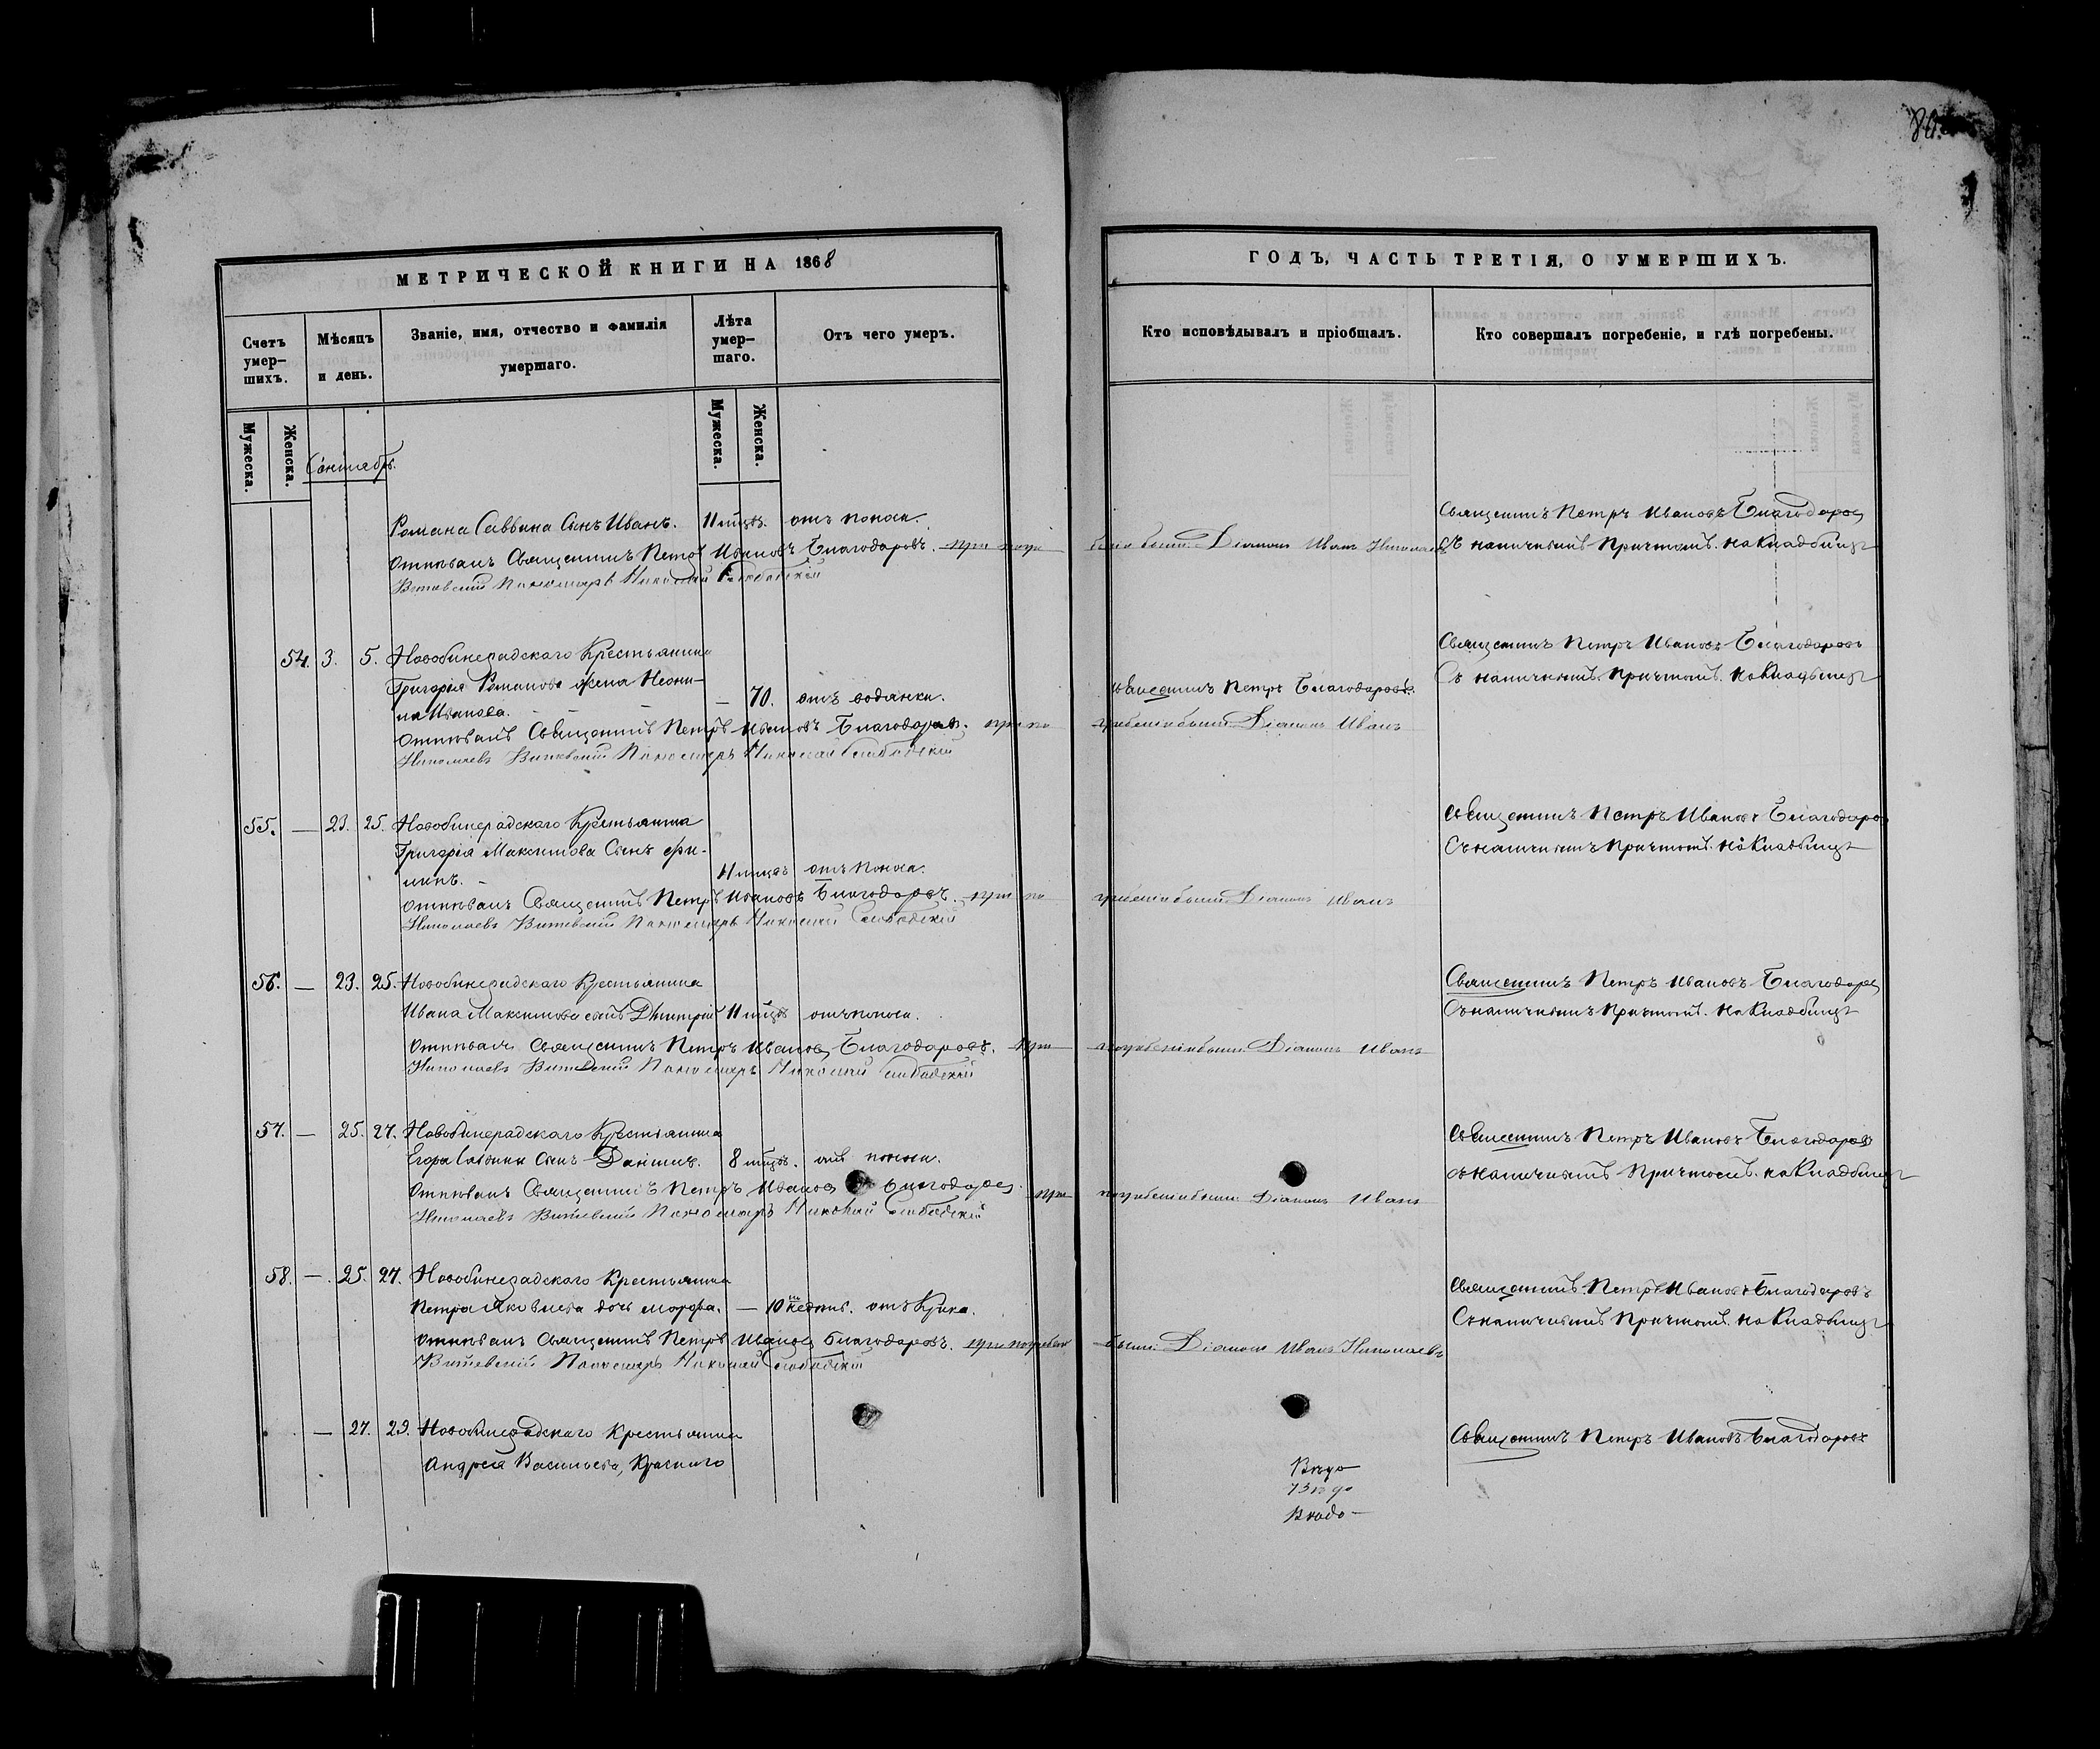 84.
МЕТРИЧЕСКОЙ КНИГИ НА 1868
ГОДЪ, ЧАСТЬ ТРЕТІЯ, О УМЕРШИХЪ.
Счетъ умер-
шихъ.
Мѣсяцъ
и день.
Званіе, имя, отчество и фамилія
умершаго.
Лѣта
умер-
шаго.
Отъ чего умеръ.
Кто исповѣдывалъ и пріобщалъ.
Кто совершалъ погребеніе, и гдѣ погребены.
Мужеска.
Женска.
Сентябрь.
Мужеска.
Женска.
Романа Саввина Сынъ Иванъ. 11 мцовъ. отъ поноса.
Отпѣвалъ Священникъ Петръ Ивановъ Благодаровъ. при погре
беніи были: Діаконъ Иванъ Николаевъ
Витевскій Пономарь Николай Слободскій
Священникъ Петръ Ивановъ Благодаровъ
Съ наличнымъ Причтомъ. на Кладбищѣ
54. 3. 5. Новобинарадскаго Крестьянина
Григорія Романова жена Неони-
ла Иванова. — 70. отъ водянки.
Священникъ Петръ Благодаровъ.
Отпѣвалъ Священникъ Петръ Ивановъ Благодаровъ. при по
гребеніи были: Діаконъ Иванъ
Николаевъ Витевскій Пономарь Николай Слободскій
Священникъ Петръ Ивановъ Благодаровъ
Съ наличнымъ Причтомъ. на Кладбищѣ
55. — 23. 25. Новобинарадскаго Крестьянина
Григорія Максимова Сынъ Фи-
липъ. — 11 мцовъ отъ поноса.
Отпѣвалъ Священникъ Петръ Ивановъ Благодаровъ. при по
гребеніи были: Діаконъ Иванъ
Николаевъ Витевскій Пономарь Николай Слободскій
Священникъ Петръ Ивановъ Благодаровъ
Съ наличнымъ Причтомъ. на Кладбищѣ
56. — 23. 25. Новобинарадскаго Крестьянина
Ивана Максимова сынъ Дмитрій 11 мцовъ отъ поноса.
Отпѣвалъ Священникъ Петръ Ивановъ Благодаровъ. при
погребеніи были: Діаконъ Иванъ
Николаевъ Витевскій Пономарь Николай Слободскій
Священникъ Петръ Ивановъ Благодаровъ
Съ наличнымъ Причтомъ. на Кладбищѣ
57. — 25. 27. Новобинарадскаго Крестьянина
Егора Саввина Сынъ Даніилъ. 8 мцовъ. отъ поноса.
Отпѣвалъ Священникъ Петръ Ивановъ Благодаровъ. при
погребеніи были: Діаконъ Иванъ
Николаевъ Витевскій Пономарь Николай Слободскій
Священникъ Петръ Ивановъ Благодаровъ
Съ наличнымъ Причтомъ. на Кладбищѣ
58. — 25. 27. Новобинарадскаго Крестьянина
Петра Яковлева дочь Марфа. — 10 недель. отъ Крика.
Отпѣвалъ Священникъ Петръ Ивановъ Благодаровъ. при погребен
были: Діаконъ Иванъ Николаевъ
Витевскій Пономарь Николай Слободскій
Священникъ Петръ Ивановъ Благодаровъ
Съ наличнымъ Причтомъ. на Кладбищѣ
— 27. 29. Новобинарадскаго Крестьянина
Андрея Васильева, Краснаго
Священникъ Петръ Ивановъ Благодаровъ